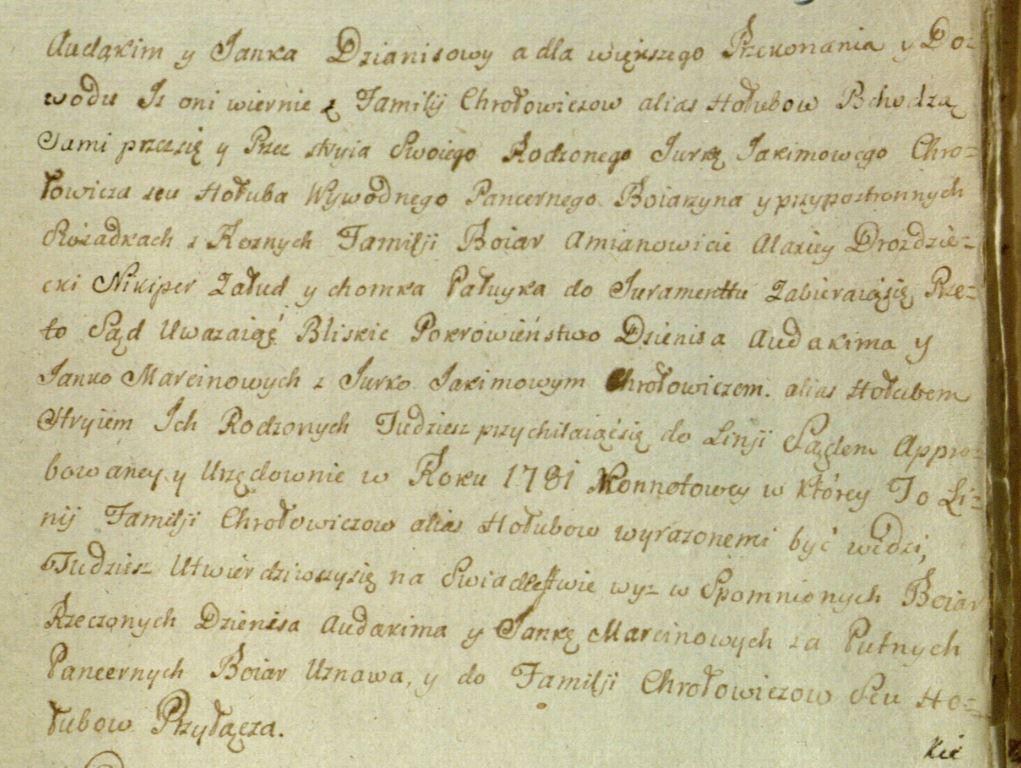 Audakim y Janka Dzianisowy a dla większego Przekonania y Do=
wodu Iz oni wiernie z Familij Chrołowiczow alias Hołubow Pchodzą
Sami przez się y Prez stryia Swoiego Rodzonego Jurkę Jakimowego Chro=
łowicza seu Hołuba Wywodnego Pancernego Boiaryna y przypostronnych
z Roznych Familji Boiar Amianowicie Alaxiey Drozdzie=
cki Nikiper Załud y chomka Pałuyka do Juramentu Zabieraiącsię Prze=
to Sąd Uwazaiąc Bliskie Pokrowieństwo Dzienisa Audakima y
Janko Marcinowych z Jurko Jakimowym Chrołowiczem. alias Hołubem
Stryiem Ich Rodzonych Tudziesz przychilaiącsię do Linji Sądem Appro=
bowaney y Urzędownie w Roku 1781 Konnotowey w ktőrey To Li=
nij Familji Chrołowiczow alias Hołubow wyrazonemi być wedzi,
Tudziesz Utwierdziwszysię na Swiadectwie wyz w Spomnionych Boiar
Rzeczonych Dzienisa Audakima y Jankę Marcinowych za Putnych
Pancernych Boiar Uznawa, y do Familji Chrołowiczow Seu Ho=
łubow Przyłącza.
kie